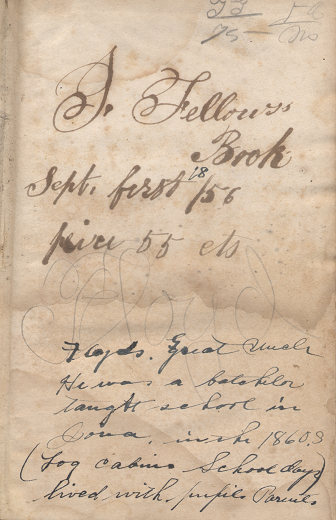 75
J. Fellows
Book
Sept. first 18/56
price 55 cts
Floyd
Floyds. Great Uncle
He was a batchlor
taught school in
Iowa, in the 1860,s
(Log cabins School days)
lived with pupils Parents